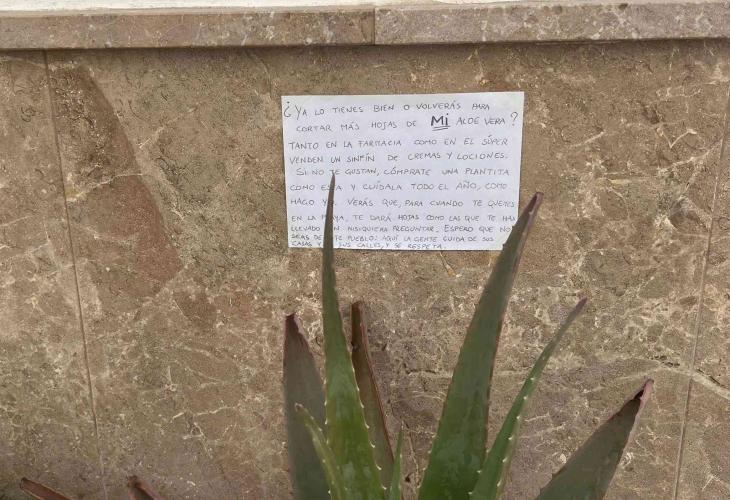 ¿YA LO TIENES BIEN O VOLVERÁS PARA
CORTAR MÁS HOJAS DE MI ALOE VERA?
TANTO EN LA FARMACIA COMO EN EL SÚPER
VENDEN UN SINFÍN DE CREMAS Y LOCIONES.
SI NO TE GUSTAN, CÓMPRATE UNA PLANTITA
COMO ESTA Y CUÍDALA TODO EL AÑO, COMO
HAGO YO. VERÁS QUE, PARA CUANDO TE QUEMES
EN LA PLAYA, TE DARÁ HOJAS COMO LAS QUE TE HAS
LLEVADO SIN NISIQUIERA PREGUNTAR. ESPERO QUE NO
SEAS DE ESTE PUEBLO: AQUÍ LA GENTE CUIDA DE SUS
CASAS Y SUS CALLES, Y SE RESPETA.